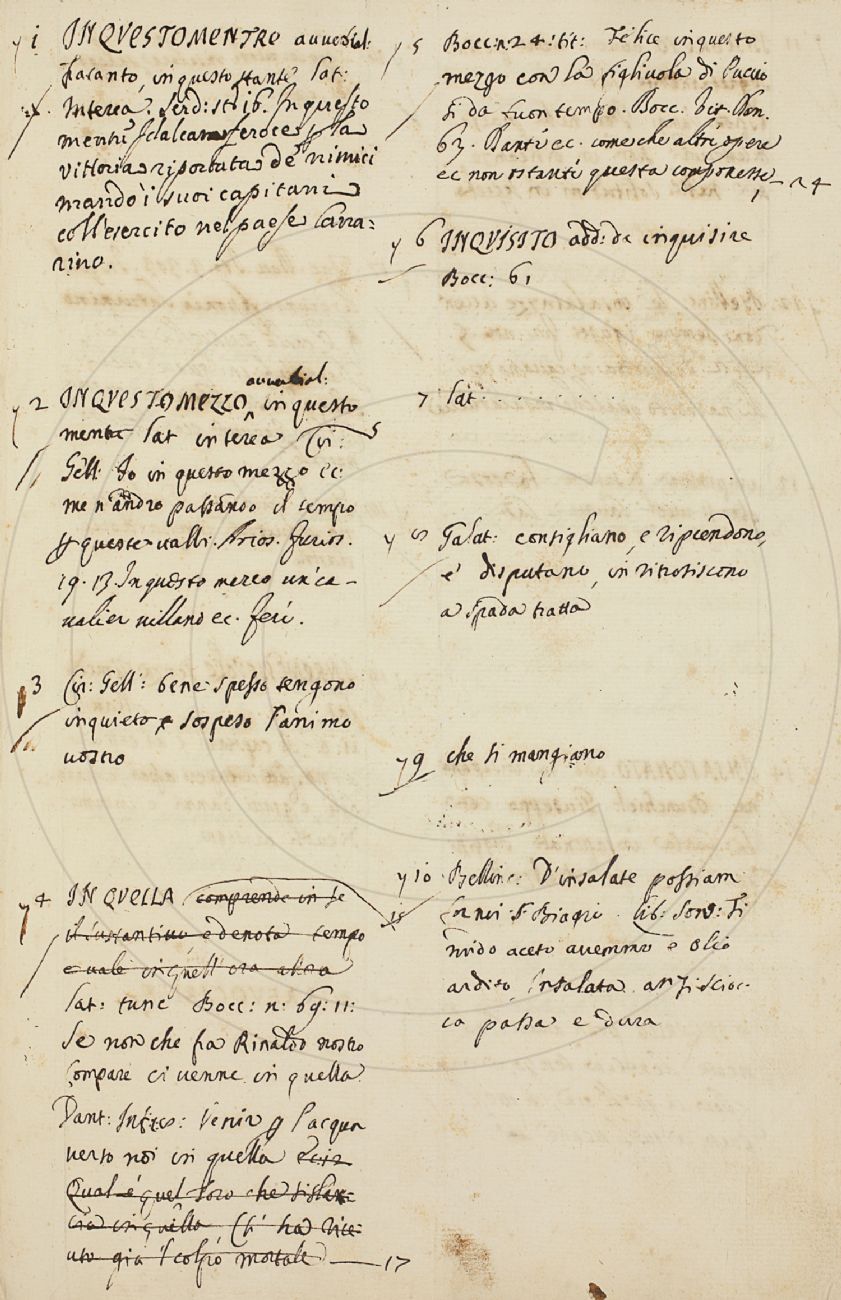 1 INQVESTOMENTRO avverbial:
taranto, in questo stante Lat:
Interea. Serd: st: 16. In questo
mentre feroce la
vittoria riportata de nimici
mandò i suoi capitani
coll'esercito nel paese Carra=
rino.
avverbial:
2 INQVESTOMEZZO in questo
mentre Lat interea Cir: 5
Gell. Io in questo mezzo ec:
me n'andrò passando il tempo
queste valli. Arios. Furios.
19. 13. In questo mezzo un ca-
valier villano ec. ferì.
3 Cir: Gell: bene spesso tengono
inquieto e sospeso l'animo
vostro
4 INQVELLA comprende in se
il sustantivo, e denota tempo
e vale in quell'ora allora
Lat: tunc Bocc: n: 69: 11:
Se non che fra Rinaldo nostro
compare ci venne in quella
Dant: Infer: Venir p l'acqua
verso noi in quella
Qual è quel toro che si slan=
cia in quella Ch' ha rice=
uto già 'l colpo mortale —17
5 Bocc: n: 24: tit: Felice in questo
mezzo con la figliuola di Puccio
si da buon tempo. Bocc. Vit. Dan.
63. Dante ec. come che altre opere
ec non ostante questa componesse
1 — 24
6 INQVISITO add: da inquisire
Bocc: 61
7 Lat . . . . . . . .
8 Galat: consigliano, e riprendono,
e disputano, inritrosiscono
a spada tratta
9 che si mangiano
10 Bellinc: D'insalate possiam
fornir S. Biagio. Lib: Son: 71
15
nuido aceto avemmo e olio
ardito Insalata
ca passa e dura